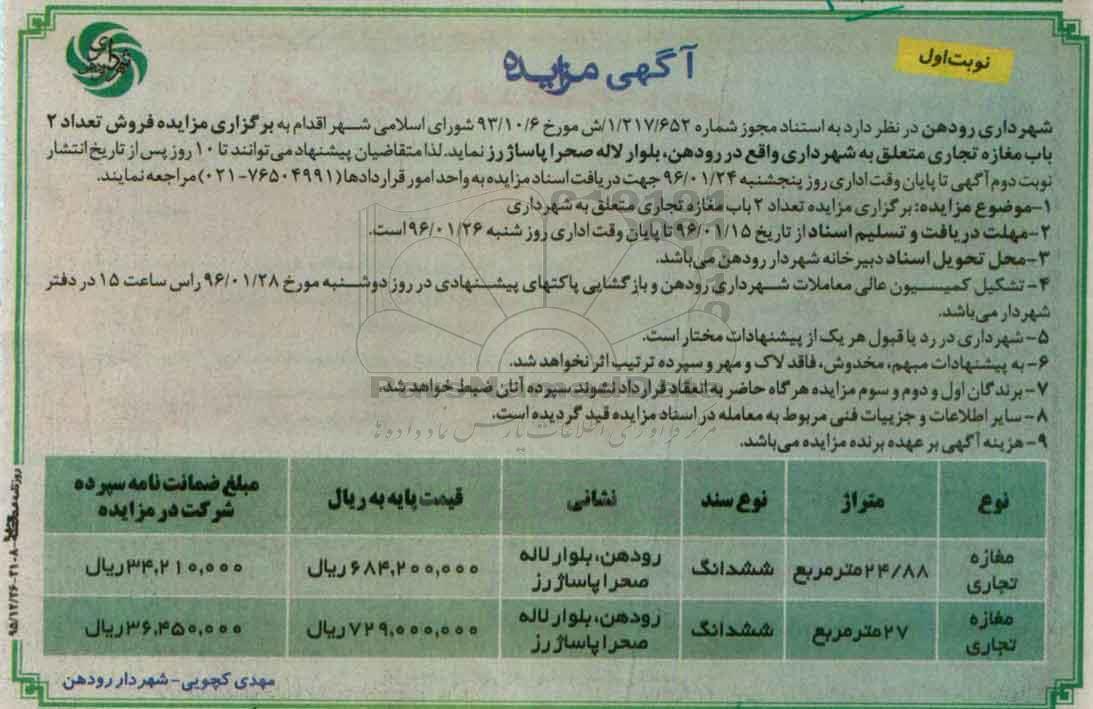 نوبت اول
شهرداری رودهن
آگهی مزایده
شهرداری رودهن در نظر دارد به استناد مجوز شماره ۱/۲۱۷/۶۵۲/ش مورخ ۹۳/۱۰/۶ شورای اسلامی شهر اقدام به برگزاری مزایده فروش تعداد ۲
باب مغازه تجاری متعلق به شهرداری واقع در رودهن، بلوار لاله صحرا پاساژ رز نماید. لذا متقاضیان پیشنهاد می‌توانند تا ۱۰ روز پس از تاریخ انتشار
نوبت دوم آگهی تا پایان وقت اداری روز پنجشنبه ۹۶/۰۱/۲۴ جهت دریافت اسناد مزایده به واحد امور قراردادها (۷۶۵۰۴۹۹۱-۰۲۱) مراجعه نمایند.
۱-موضوع مزایده: برگزاری مزایده تعداد ۲ باب مغازه تجاری متعلق به شهرداری
۲-مهلت دریافت و تسلیم اسناد از تاریخ ۹۶/۰۱/۱۵ تا پایان وقت اداری روز شنبه ۹۶/۰۱/۲۶ است.
۳-محل تحویل اسناد دبیرخانه شهردار رودهن می‌باشد.
۴- تشکیل کمیسیون عالی معاملات شهرداری رودهن و بازگشایی پاکتهای پیشنهادی در روز دوشنبه مورخ ۹۶/۰۱/۲۸ راس ساعت ۱۵ در دفتر
شهردار می‌باشد.
۵- شهرداری در رد یا قبول هر یک از پیشنهادات مختار است.
۶- به پیشنهادات مبهم، مخدوش، فاقد لاک و مهر و سپرده ترتیب اثر نخواهد شد.
۷- برندگان اول و دوم و سوم مزایده هرگاه حاضر به انعقاد قرارداد نشوند سپرده آنان ضبط خواهد شد.
۸- سایر اطلاعات و جزییات فنی مربوط به معامله در اسناد مزایده قید گردیده است.
۹- هزینه آگهی بر عهده برنده مزایده می‌باشد.
نوع متراژ نوع سند نشانی قیمت پایه به ریال مبلغ ضمانت نامه سپرده
شرکت در مزایده
مغازه تجاری ۲۴/۸۸ مترمربع ششدانگ رودهن، بلوار لاله صحرا پاساژ رز ۶۸۴,۲۰۰,۰۰۰ ریال ۳۴,۲۱۰,۰۰۰ ریال
مغازه تجاری ۲۷ مترمربع ششدانگ رودهن، بلوار لاله صحرا پاساژ رز ۷۲۹,۰۰۰,۰۰۰ ریال ۳۶,۴۵۰,۰۰۰ ریال
مهدی کچویی-شهردار رودهن